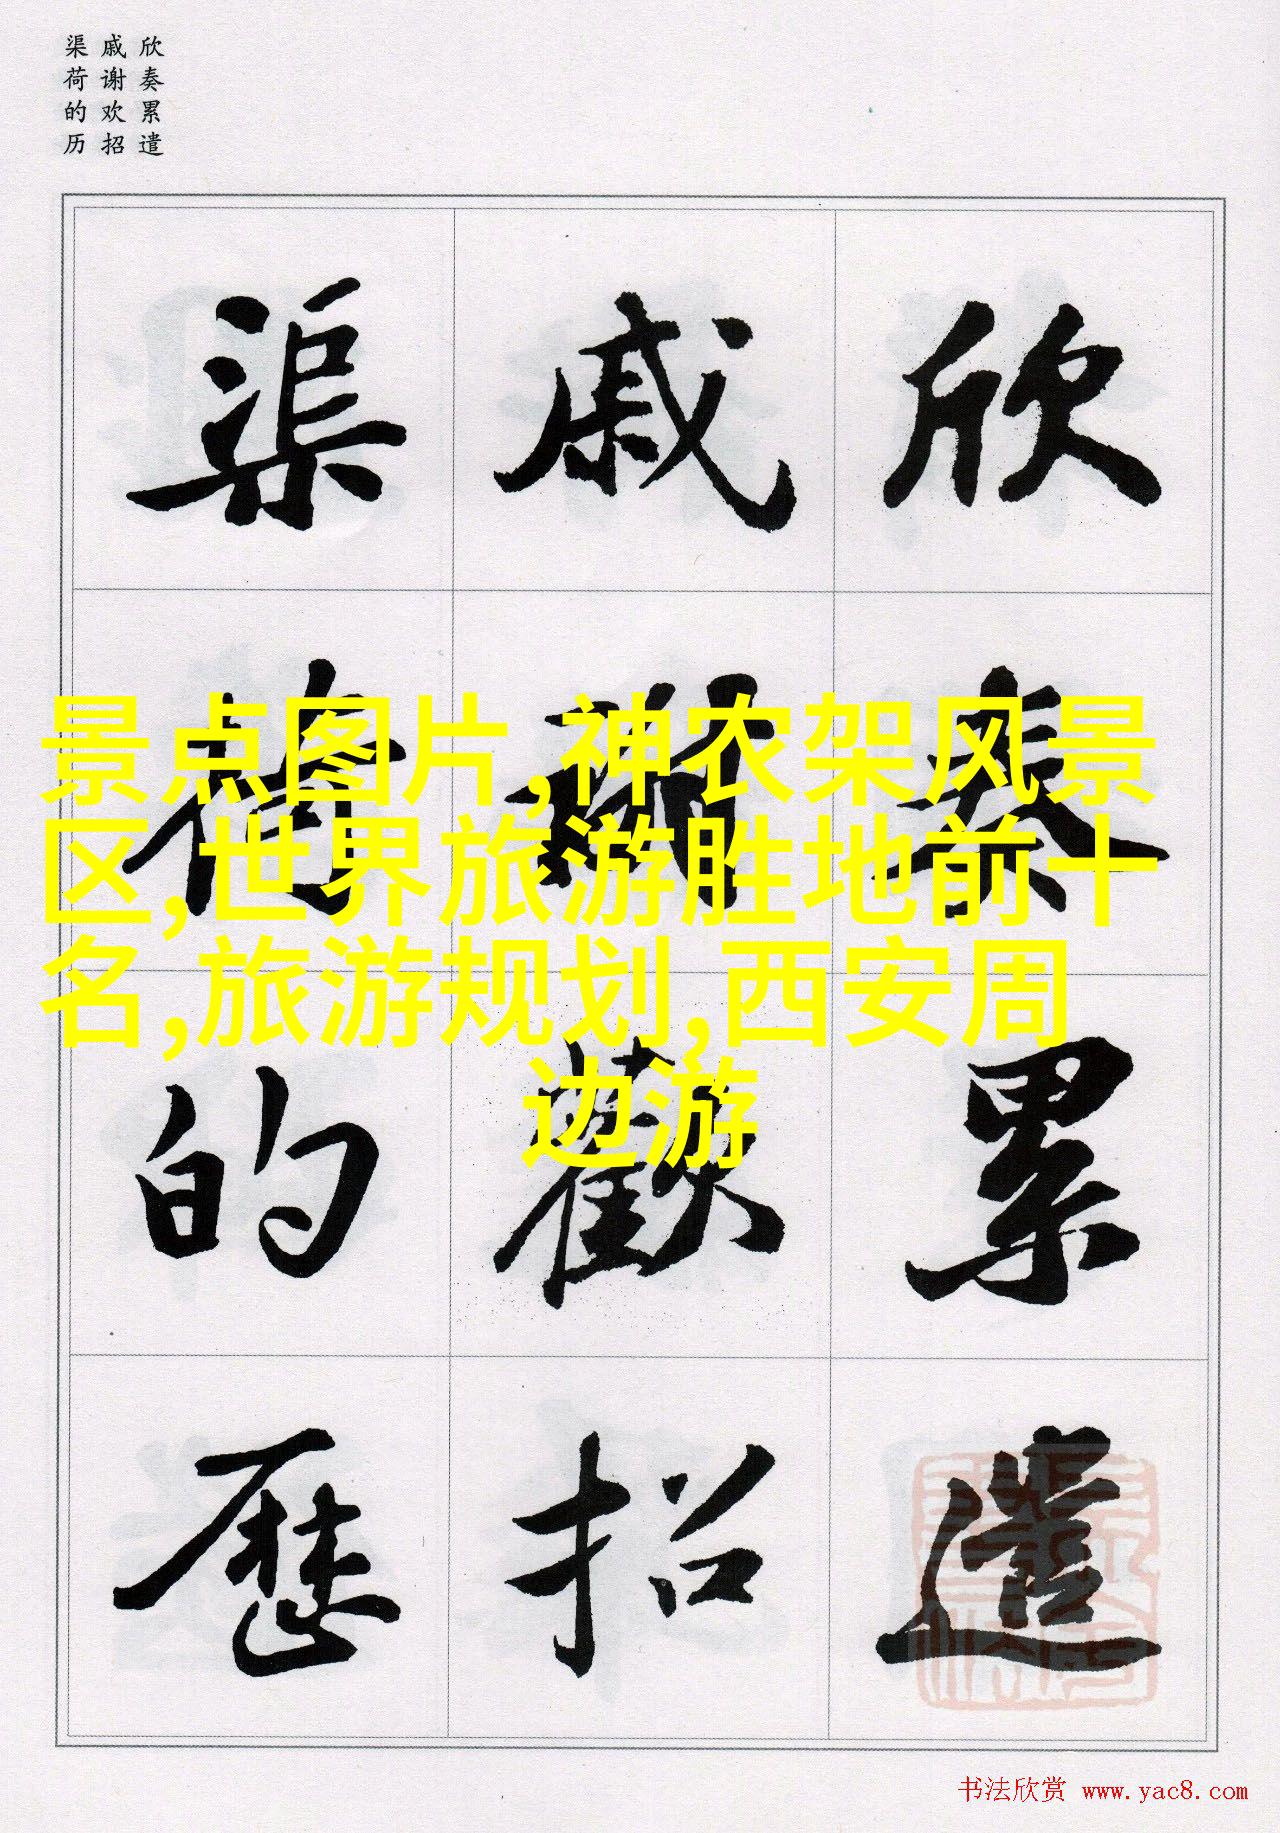 欣奏累遣
戚谢欢招
渠荷的历
欣奏累遣
戚謝歡招
渠荷的歷
景点图片,神农架风景
区,世界旅游胜地前十
名,旅游规划,西安周
边游
书法欣赏 www.yac8.com